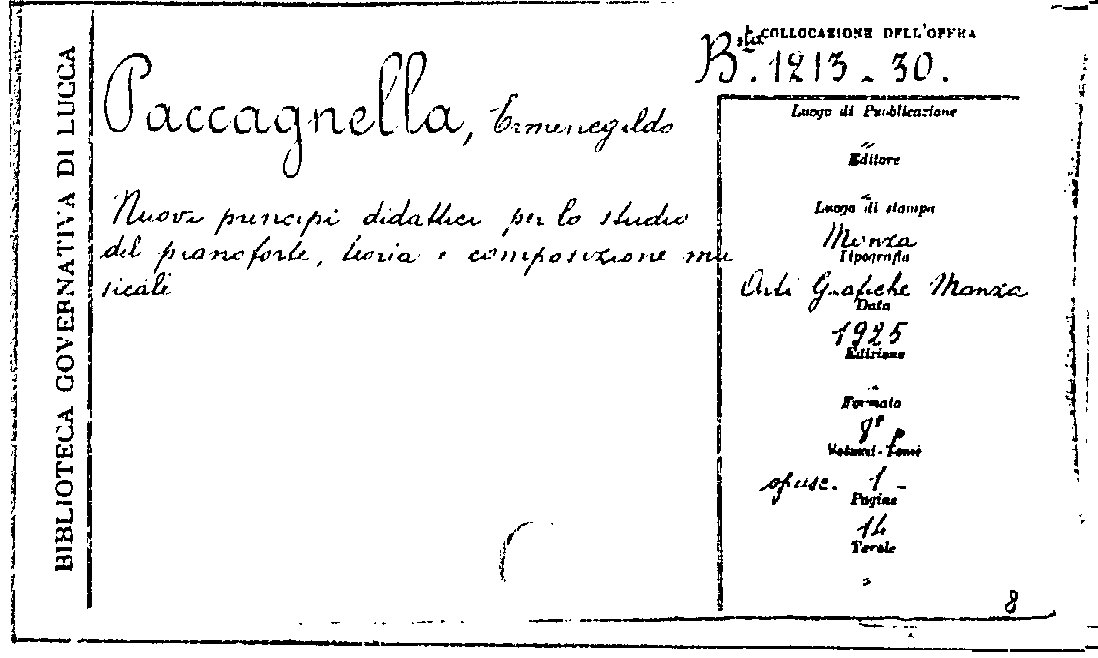 BIBLIOTECA GOVERNATIVA DI LUCCA
COLLOCAZIONE DELL'OPERA
Bsta. 1213 - 30.
Paccagnella, Ermenegildo
Nuovi principi didattici per lo studio
del pianoforte, teoria e composizione mu
sicale
Luogo di Pubblicazione
"
Editore
"
Luogo di stampa
Monza
Tipografia
Arti Grafiche Monza
Data
1925
Edizione
"
Formato
8°
Volumi-Tomi
opusc. 1 -
Pagine
14
Tavole
"
8